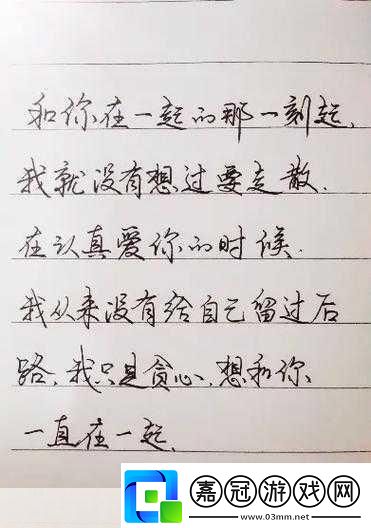 和你在一起的那一刻起,
我就没有想过要走散.
在认真爱你的时候.
我从来没有给自己留过后
路,我只是贪心,想和你、
一直在一起.
嘉冠游戏网
www.03mm.net